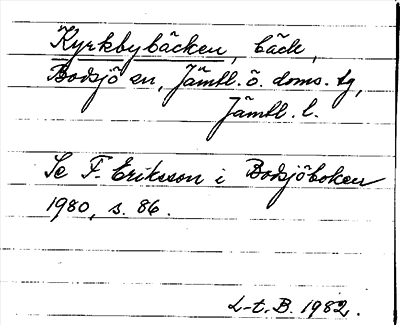 Kyrkbybäcken, bäck,
Bodsjö sn, Jämtl. ö. doms. tg,
Jämtl. l.
Se F. Eriksson i Bodsjöboken
1980, s. 86.
L-t. B. 1982.